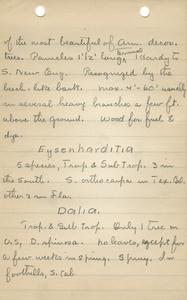 of the most beautiful of Am. decor.
trees. Panicles 1'½' long, Hardy to
S. New Eng. Recognized by the
beech-like bark. max. 4'-60' usually
in several heavy branches a few ft.
above the ground. Wood for fuel &
dye.
Eysenhardtia
5 species, Trop & Sub trop. 3 in
the South. S. orthocarpa in Tex. Col.
other 2 in Fla.
Dalia.
Trop. & Sub trop. Only 1 tree in
U.S, D. spinosa. no leaves, except for
a few weeks in spring. Spiny. In
foothills, S. Cal.